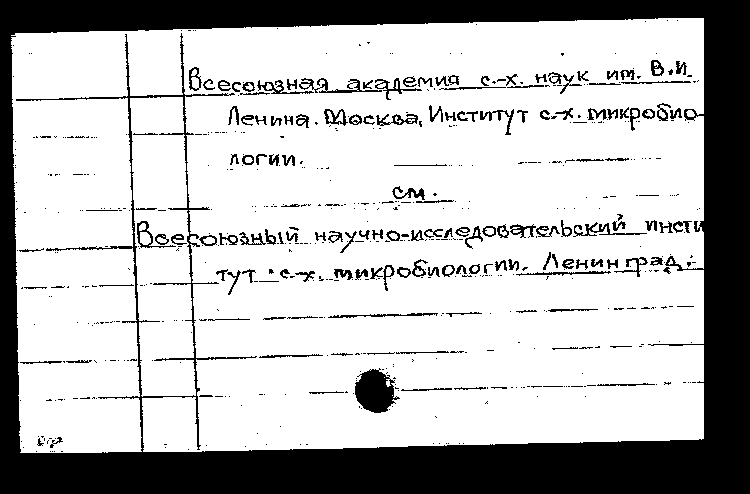 Всесоюзная академия с.-х. наук им. В.И.
Ленина. Москва, Институт с.-х. микробио-
логии.
см.
Всесоюзный научно-исследовательский инсти
тут с.-х. микробиологии. Ленинград.